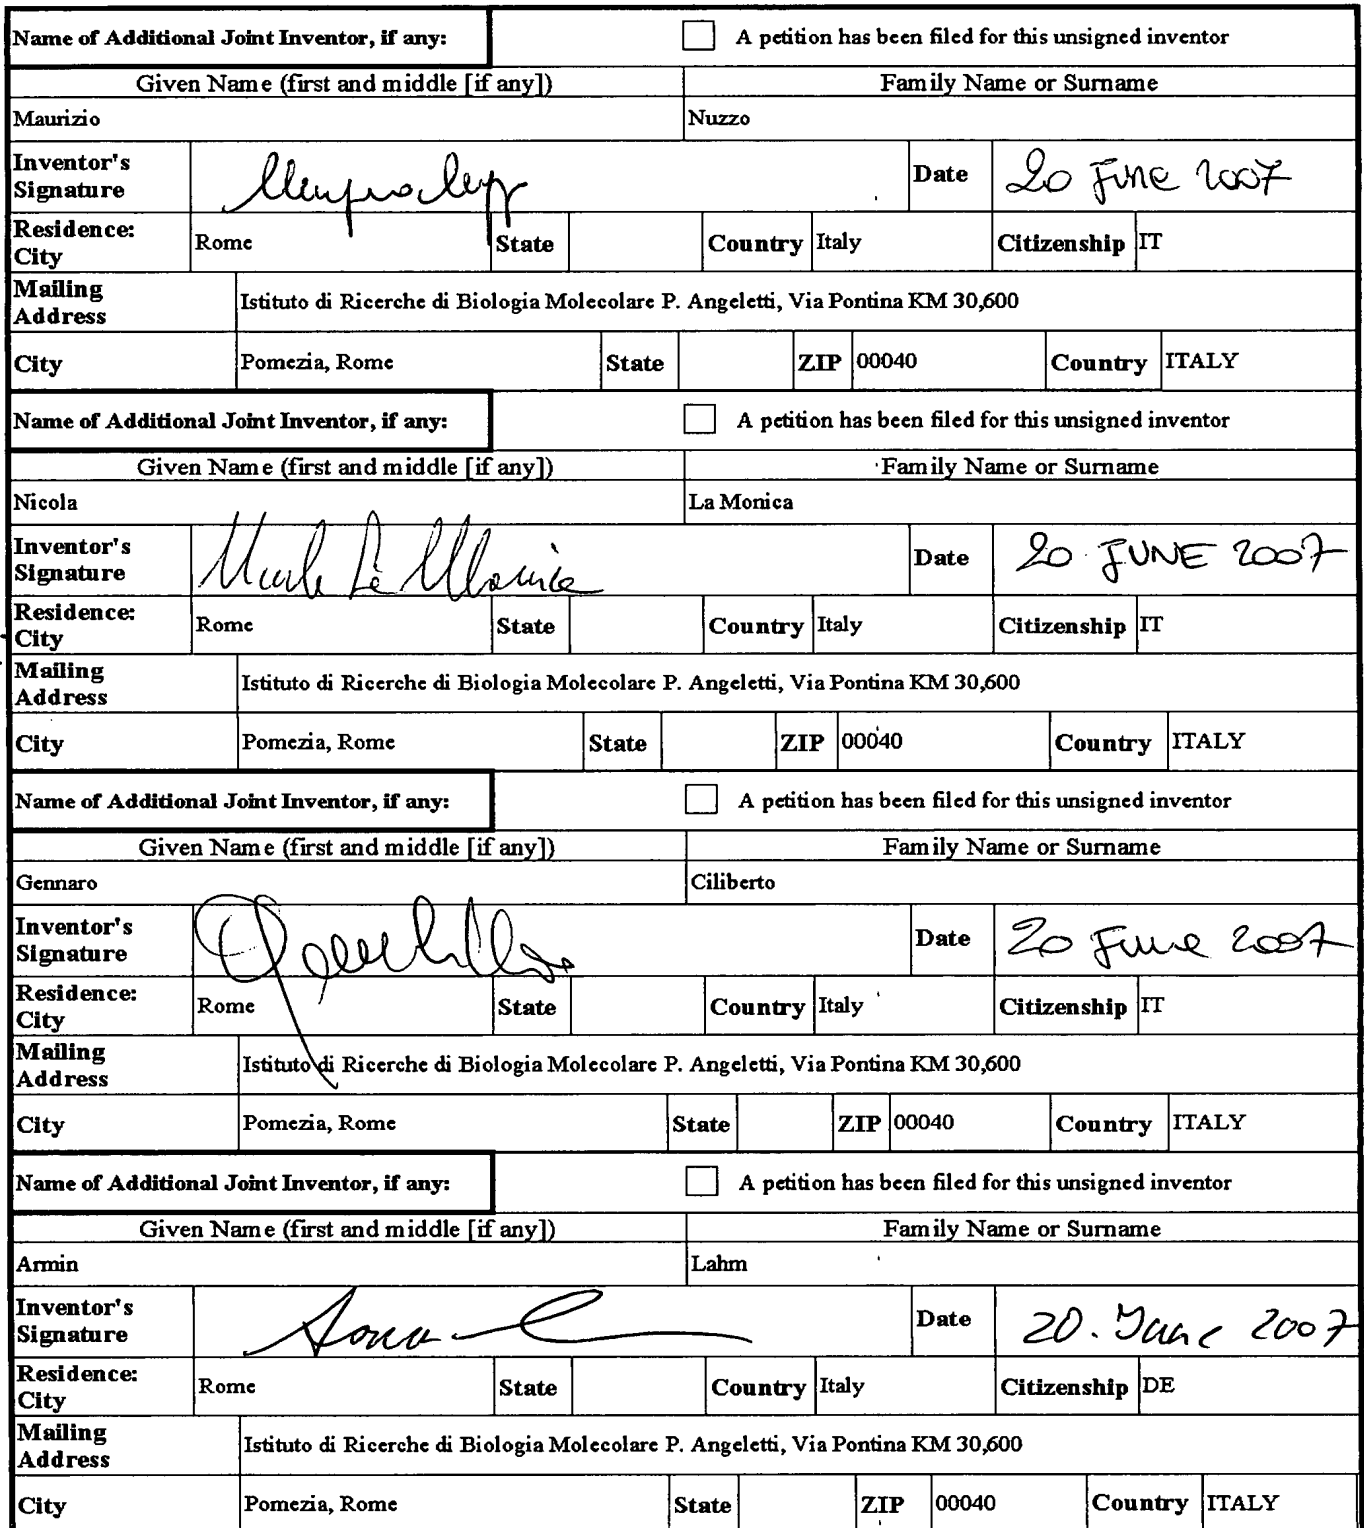 Name of Additional Joint Inventor, if any: A petition has been filed for this unsigned inventor
Given Name (first and middle [if any]) Family Name or Surname
Maurizio Nuzzo
Inventor's Signature Date 20 June 2007
Residence: City Rome State Country Italy Citizenship IT
Mailing Address Istituto di Ricerche di Biologia Molecolare P. Angeletti, Via Pontina KM 30,600
City Pomezia, Rome State ZIP 00040 Country ITALY
Name of Additional Joint Inventor, if any: A petition has been filed for this unsigned inventor
Given Name (first and middle [if any]) Family Name or Surname
Nicola La Monica
Inventor's Signature Date 20 JUNE 2007
Residence: City Rome State Country Italy Citizenship IT
Mailing Address Istituto di Ricerche di Biologia Molecolare P. Angeletti, Via Pontina KM 30,600
City Pomezia, Rome State ZIP 00040 Country ITALY
Name of Additional Joint Inventor, if any: A petition has been filed for this unsigned inventor
Given Name (first and middle [if any]) Family Name or Surname
Gennaro Ciliberto
Inventor's Signature Date 20 June 2007
Residence: City Rome State Country Italy Citizenship IT
Mailing Address Istituto di Ricerche di Biologia Molecolare P. Angeletti, Via Pontina KM 30,600
City Pomezia, Rome State ZIP 00040 Country ITALY
Name of Additional Joint Inventor, if any: A petition has been filed for this unsigned inventor
Given Name (first and middle [if any]) Family Name or Surname
Armin Lahm
Inventor's Signature Date 20. June 2007
Residence: City Rome State Country Italy Citizenship DE
Mailing Address Istituto di Ricerche di Biologia Molecolare P. Angeletti, Via Pontina KM 30,600
City Pomezia, Rome State ZIP 00040 Country ITALY